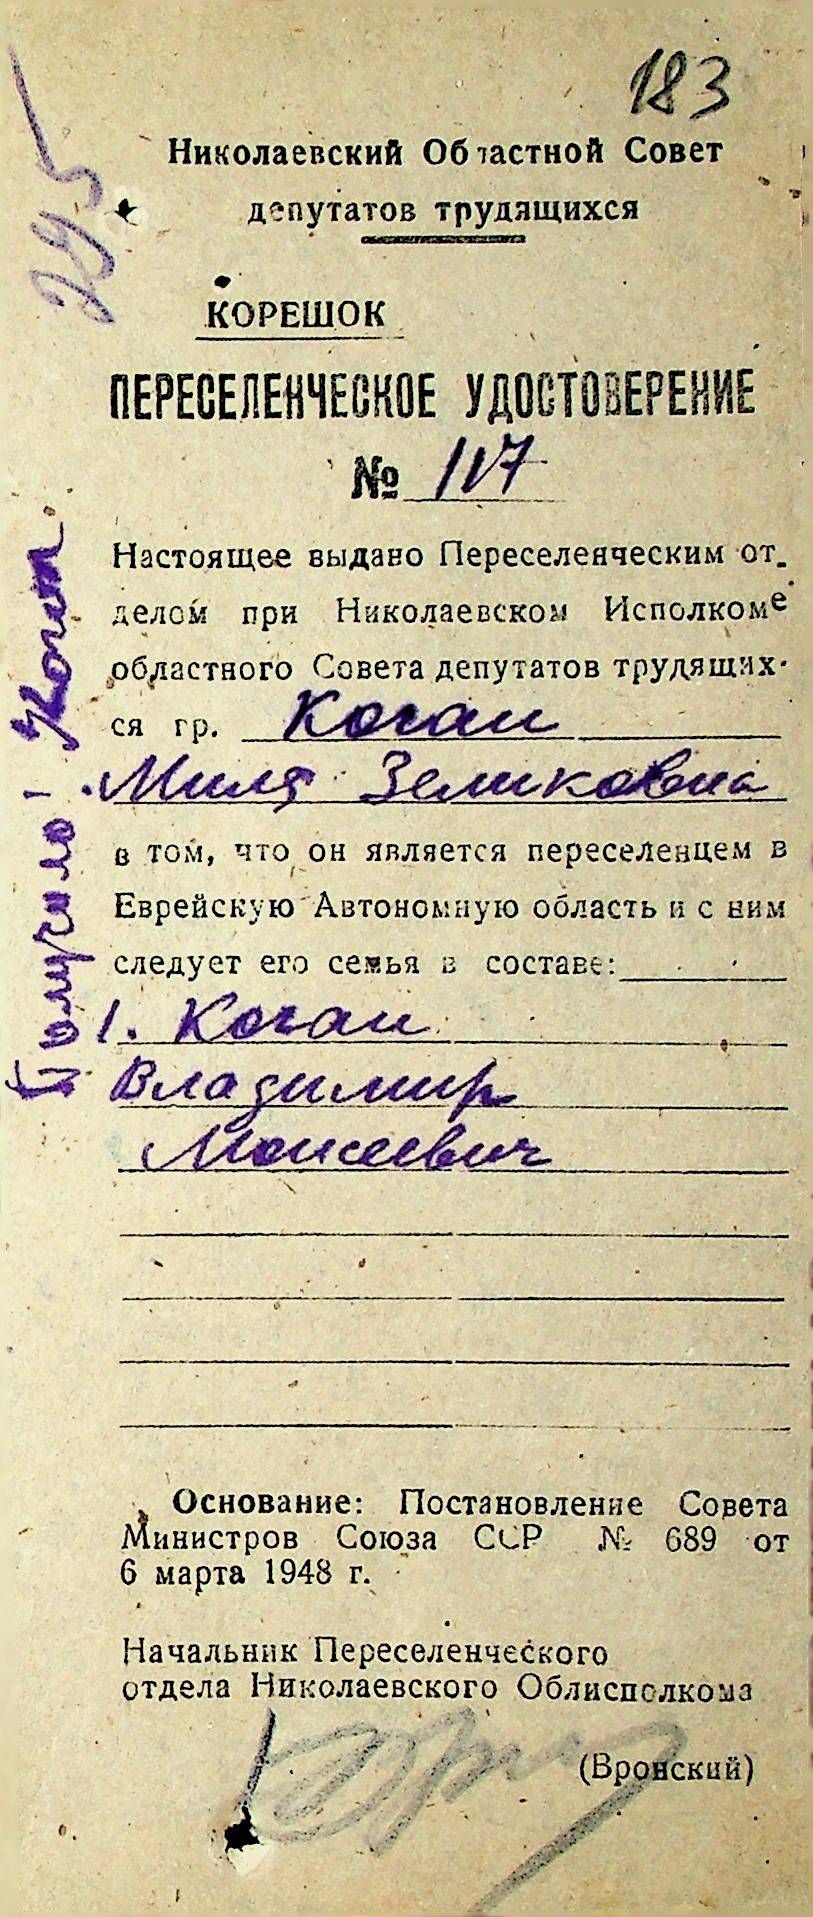 183
245
Николаевский Областной Совет
депутатов трудящихся
КОРЕШОК
ПЕРЕСЕЛЕНЧЕСКОЕ УДОСТОВЕРЕНИЕ
№ 117
Настоящее выдано Переселенческим от-
делом при Николаевском Исполкоме
областного Совета депутатов трудящих-
ся гр. Коган
Миля Зеликовна
в том, что он является переселенцем в
Еврейскую Автономную область и с ним
следует его семья в составе:
1. Коган
Владимир
Моисеевич
Основание: Постановление Совета
Министров Союза ССР № 689 от
6 марта 1948 г.
Начальник Переселенческого
отдела Николаевского Облисполкома
(Вронский)
Получила -